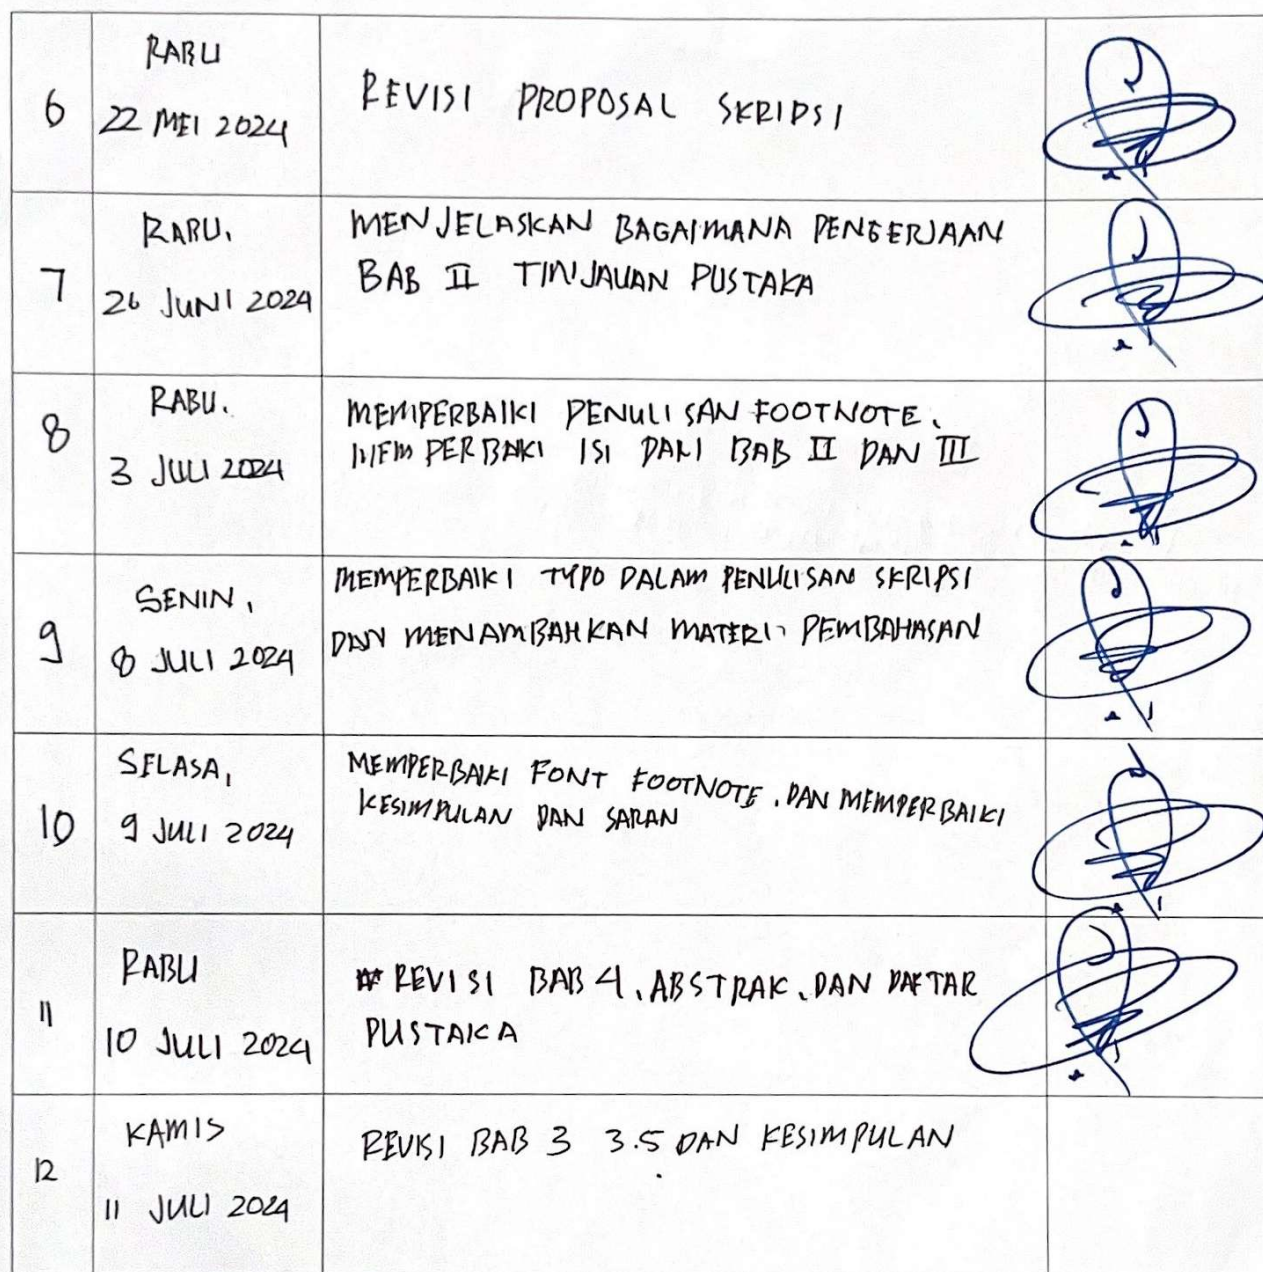 6
RABU
22 MEI 2024
REVISI PROPOSAL SKRIPSI
7
RABU,
26 JUNI 2024
MENJELASKAN BAGAIMANA PENGERJAAN
BAB II TINJAUAN PUSTAKA
8
RABU,
3 JULI 2024
MEMPERBAIKI PENULISAN FOOTNOTE,
MEMPERBAKI ISI DARI BAB II DAN III
9
SENIN,
8 JULI 2024
MEMPERBAIKI TYPO DALAM PENULISAN SKRIPSI
DAN MENAMBAHKAN MATERI PEMBAHASAN
10
SELASA,
9 JULI 2024
MEMPERBAIKI FONT FOOTNOTE, DAN MEMPERBAIKI
KESIMPULAN DAN SARAN
11
RABU
10 JULI 2024
REVISI BAB 4, ABSTRAK, DAN DAFTAR
PUSTAKA
12
KAMIS
11 JULI 2024
REVISI BAB 3 3.5 DAN KESIMPULAN